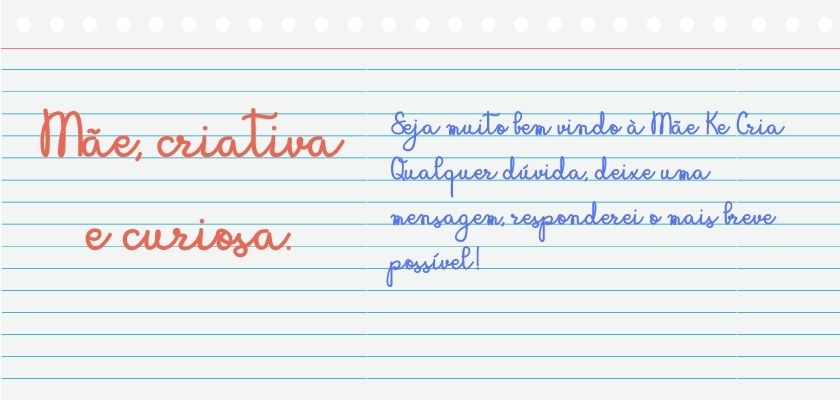 Mãe, criativa
e curiosa.
Seja muito bem vindo à Mãe Ke Cria
Qualquer dúvida, deixe uma
mensagem, responderei o mais breve
possível!